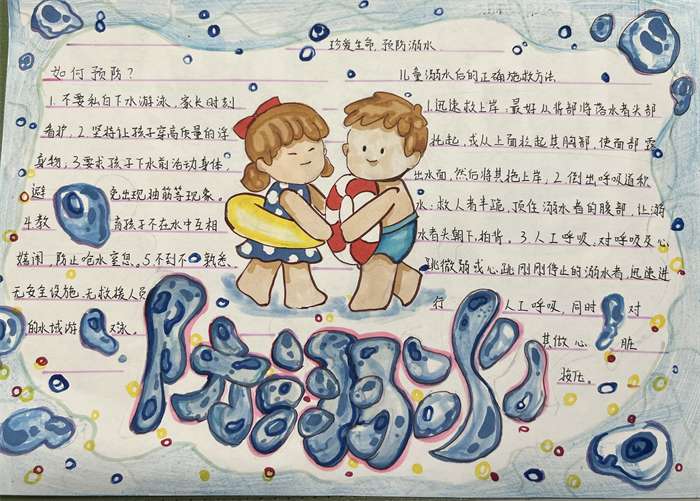 珍爱生命,预防溺水
如何预防?
1.不要私自下水游泳,家长时刻
看护,2.坚持让孩子穿高质量的浮
身物,3.要求孩子下水前活动身体,
避免出现抽筋等现象。
4.教育孩子不在水中互相
嬉闹,防止呛水窒息。5.不到不熟悉、
无安全设施、无救援人员
的水域游泳。
儿童溺水后的正确施救方法
1.迅速救上岸:最好从背部将落水者头部
托起,或从上面拉起其胸部,使面部露
出水面,然后将其拖上岸,2.倒出呼吸道积
水:救人者半跪,顶住溺水者的腹部,让溺
水者头朝下,拍背。3.人工呼吸:对呼吸及心
跳微弱或心跳刚刚停止的溺水者,迅速进
行人工呼吸,同时对
其做心脏
按压。
防溺水